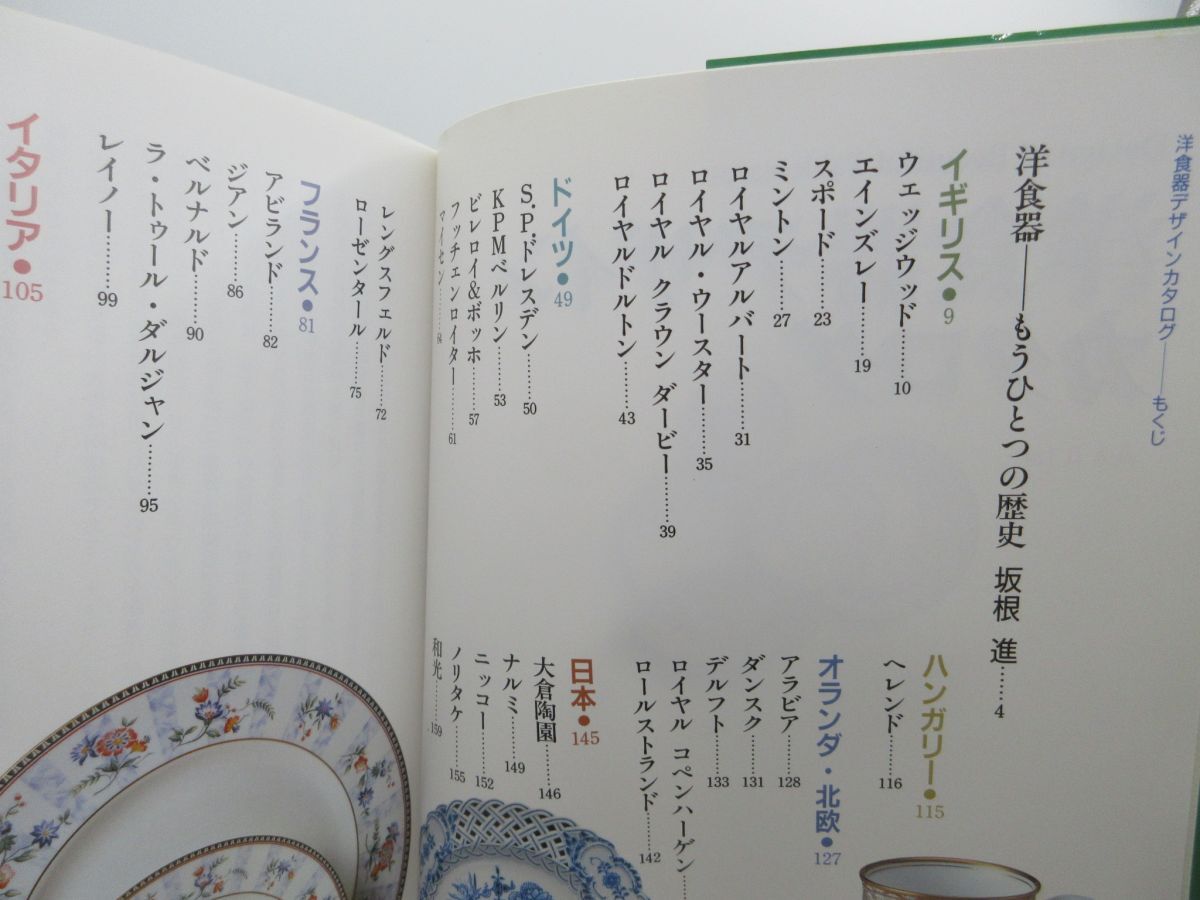 洋食器デザインカタログ――もくじ
洋食器――もうひとつの歴史 坂根 進……4
イギリス●9
ウェッジウッド……10
エインズレー……19
スポード……23
ミントン……27
ロイヤルアルバート……31
ロイヤル・ウースター……35
ロイヤル クラウン ダービー……39
ロイヤルドルトン……43
ドイツ●49
S.P.ドレスデン……50
KPMベルリン……53
ビレロイ&ボッホ……57
フッチェンロイター……61
マイセン……64
レングスフェルド……72
ローゼンタール……75
フランス●81
アビランド……82
ジアン……86
ベルナルド……90
ラ・トゥール・ダルジャン……95
レイノー……99
イタリア●105
ハンガリー●115
ヘレンド……116
オランダ・北欧●127
アラビア……128
ダンスク……131
デルフト……133
ロイヤル コペンハーゲン……
ロールストランド……142
日本●145
大倉陶園……146
ナルミ……149
ニッコー……152
ノリタケ……155
和光……159